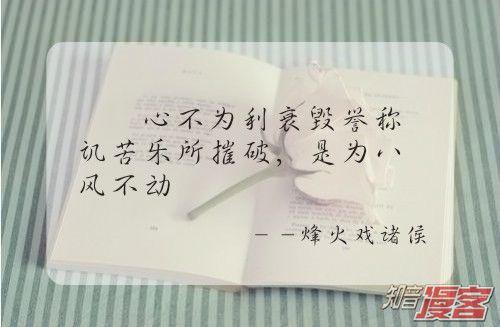 心不为利衰毁誉称
讥苦乐所摧破，是为八
风不动
——烽火戏诸侯
知音漫客